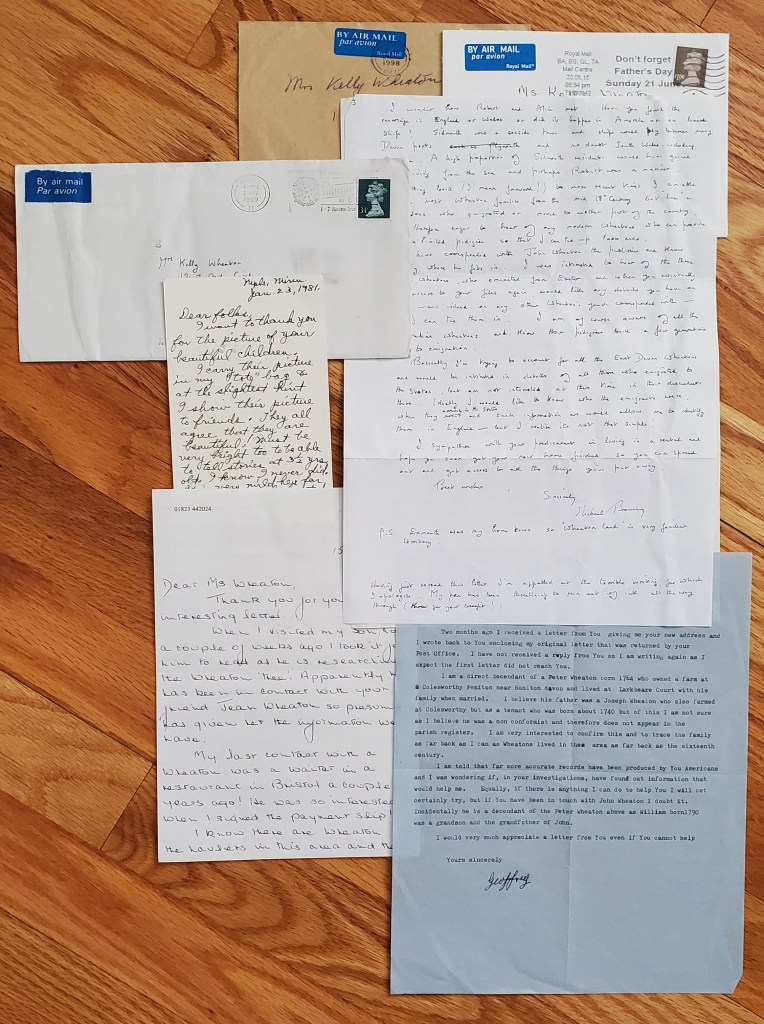 BY AIR MAIL
par avion
Royal Mail
1998
Mrs Kelly Wheaton
1
BY AIR MAIL
par avion
Royal Mail
Royal Mail
BA, BS, GL, TA
Mail Centre
20.05.15
05:34 pm
Don't forget
Father's Day
Sunday 21 June
Ms
By air mail
Par avion
Mrs Kelly Wheaton
Mpls, Minn
Jan. 23, 1981.
Dear folks,
I want to thank you
for the picture of your
beautiful children.
I carry their picture
in my "tote" bag &
at the slightest hint
I show their picture
to friends. They all
agree that they are
beautiful! Must be
very bright too to be able
to tell stories at 3½ yrs
old. I know I never did.
3
I wonder how Robert and Alice met. Have you found the
marriage in England or Wales or did it happen in America or on board
ship? Sidmouth was a seaside town and ships would ply between many
Devon ports and no doubt South Wales including
A high proportion of Sidmouth residents would have gained
living from the sea and perhaps Robert was a mariner
(I mean forward!) to more recent times I am able
most Wheaton families from the mid 18th Century but there
who emigrated or moved to another part of the country.
eager to hear of any modern Wheatons who can provide
a limited pedigree so that I can tie up loose ends.
have corresponded with John Wheaton the publisher and know
where he fits in. I was interested to hear of the three
Wheatons who emigrated from Exeter and when you eventually
access to your files again would like any details you have on
or any other Wheatons you've corresponded with —
I can tie them in. I am of course aware of all the
Wheatons and know their pedigrees back a few generations
to emigration.
Basically I'm trying to account for all the East Devon Wheatons
and would be interested in details of all those who emigrated to
the States, but am not interested at this time in their descendants
there. Ideally I would like to know who the emigrants were,
when they and such information as would allow me to identify
them in England — but I realise it's not that simple!
I sympathise with your predicament in living in a rental and
hope you soon get your new home finished so you can spread
out and get access to all the things you put away.
Best wishes
Sincerely
Michael
P.S. Exmouth was my home town so 'Wheaton land' is very familiar
territory.
Having just reread this letter I'm appalled at the terrible writing, for which
I apologise. My pen has been threatening to run out of ink all the way
through
01823 442024
15
Dear Ms Wheaton,
Thank you for you
interesting letter.
When I visited my son,
a couple of weeks ago I took it
him to read as he is researchin
the Wheaton 'Tree'. Apparently h
has been in contact with your
friend Jean Wheaton so presum
has given her the information we
have.
My last contact with a
Wheaton was a waiter in a
restaurant in Bristol a couple
years ago! He was so interested
when I signed the payment slip!
I know there are Wheaton
the hauliers in this area and the
Two months ago I received a letter from You giving me your new address and
I wrote back to You enclosing my original letter that was returned by your
Post Office. I have not received a reply from You so I am writing again as I
expect the first letter did not reach You.
I am a direct decendant of a Peter Wheaton born 1764 who owned a farm at
Colesworthy Feniton near Honiton davon and lived at Larkbeare Court with his
family when married. I believe his father was a Joseph Wheaton who also farmed
at Colesworthy but as a tenant who was born about 1740 but of this I am not sure
as I believe he was a non conformist and therefore does not appear in the
parish register. I am very interested to confirm this and to trace the family
as far back as I can as Wheatons lived in thes area as far back as the sixteenth
century.
I am told that far more accurate records have been produced by You Americans
and I was wondering if, in your investigations, have found out information that
would help me. Equally, if there is anything I can do to help You I will cet
certainly try, but if You have been in touch with John Wheaton I doubt it.
Incidentally he is a decendant of the Peter Wheaton above as William born1790
was a grandson and the grandfather of John.
I would very much appreciate a letter from You even if You cannot help
Yours sincerely
Geoffrey